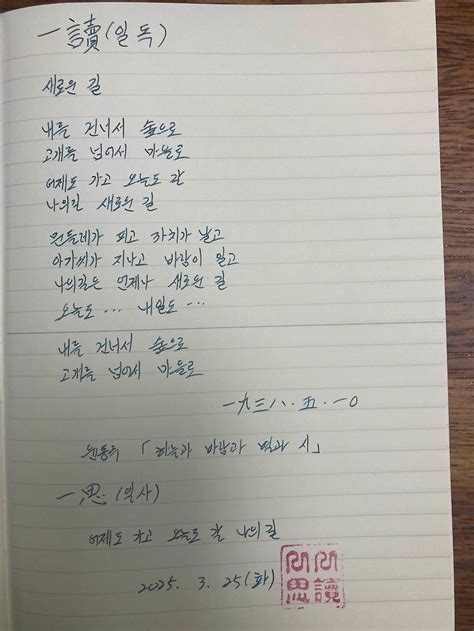 一讀(일독)
새로운 길
내를 건너서 숲으로
고개를 넘어서 마을로
어제도 가고 오늘도 갈
나의길 새로운 길
민들레가 피고 까치가 날고
아가씨가 지나고 바람이 일고
나의길은 언제나 새로운 길
오늘도 … 내일도 …
내를 건너서 숲으로
고개를 넘어서 마을로
一九三八·五·一〇
윤동주 「하늘과 바람과 별과 시」
一思(일사)
어제도 가고 오늘도 갈 나의길
2025. 3. 25(화)
思讀